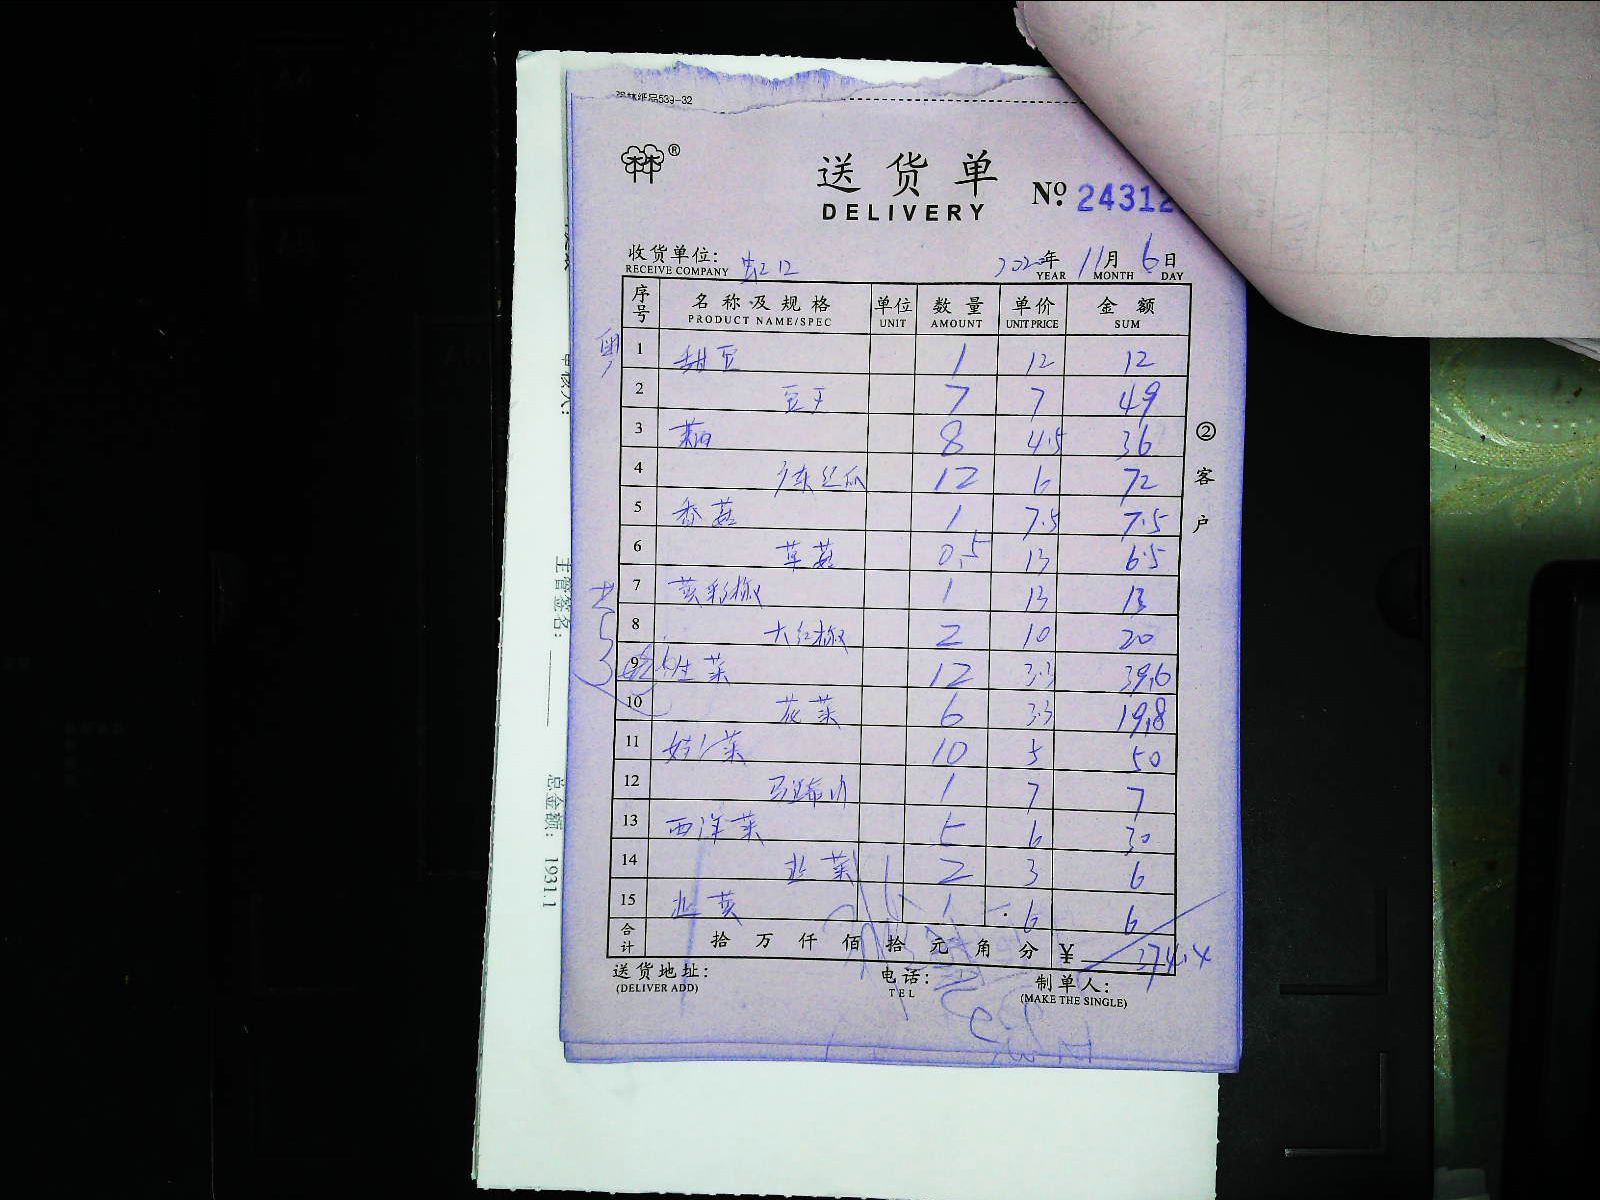 539-32
®
送货单
DELIVERY
№ 24312
收货单位: 虹12
RECEIVE COMPANY
2020年 11月 6日
YEAR MONTH DAY
序号 名称及规格 单位 数量 单价 金额
PRODUCT NAME/SPEC UNIT AMOUNT UNIT PRICE SUM
粤
1 甜豆 1 12 12
2 豆干 7 7 49
3 8 4.5 36
4 广东丝瓜 12 6 72
5 香菇 1 7.5 7.5
6 草菇 0.5 13 6.5
7 黄彩椒 1 13 13
8 大红椒 2 10 20
9 生菜 12 3.3 39.6
10 花菜 6 3.3 19.8
11 菜 10 5 50
12 1 7 7
13 西洋菜 5 6 30
14 韭菜 2 3 6
15 韭黄 1 6 6
合计 拾 万 仟 佰 拾 元 角 分 ¥ 374.4
共3
② 客户
送货地址: 电话: 制单人:
(DELIVER ADD) TEL (MAKE THE SINGLE)
主管签名:
总金额: 1931.1